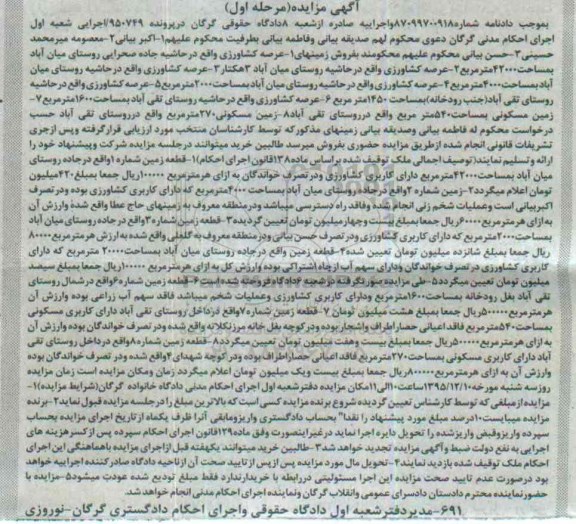 آگهی مزایده(مرحله اول)
بموجب دادنامه شماره۸۷۰۹۹۷۰۰۹۱۸واجراییه صادره ازشعبه ۸دادگاه حقوقی گرگان درپرونده ۹۵۰۷۴۹/اجرایی شعبه اول
اجرای احکام مدنی گرگان دعوی محکوم لهم صدیقه بیانی وفاطمه بیانی بطرفیت محکوم علیهم۱-اکبر بیانی۲-معصومه میرمحمد
حسینی۳-حسن بیانی محکوم علیهم محکومند بفروش زمینهای۱-عرصه کشاورزی واقع درحاشیه جاده صحرایی روستای میان آباد
بمساحت۴۲۰۰۰مترمربع۲-عرصه کشاورزی واقع درحاشیه روستای میان آباد ۳هکتار۳-عرصه کشاورزی واقع درحاشیه روستای میان
آباد بمساحت۴۰۰۰مترمربع۴-عرصه کشاورزی واقع درحاشیه روستای میان آباد بمساحت۲۰۰۰مترمربع۵-عرصه کشاورزی واقع درحاشیه
روستای تقی آباد(جنب رودخانه)بمساحت ۱۴۵۰متر مربع ۶-عرصه کشاورزی واقع درحاشیه روستای تقی آباد بمساحت۱۶۰۰مترمربع۷-
زمین مسکونی بمساحت۵۴۰متر مربع واقع درروستای تقی آباد۸-زمین مسکونی۲۷۰مترمربع واقع درروستای تقی آباد حسب
درخواست محکوم له فاطمه بیانی وصدیقه بیانی زمینهای مذکورکه توسط کارشناسان منتخب مورد ارزیابی قرارگرفته وپس ازجری
تشریفات قانونی انجام شده ازطریق مزایده حضوری بفروش میرسد طالبین خرید میتوانند درجلسه مزایده شرکت وپیشنهاد خود را
ارائه وتسلیم نمایند(توصیف اجمالی ملک توقیف شده براساس ماده۱۳۸قانون اجرای احکام)۱-قطعه زمین شماره ۱واقع درجاده روستای
میان آباد بمساحت۴۲۰۰۰مترمربع دارای کاربری کشاورزی ودر تصرف خواندگان به ازای هرمترمربع ۱۰۰۰۰۰ریال جمعا بمبلغ۴۲۰میلیون
تومان اعلام میگردد۲-زمین شماره ۲واقع درجاده روستای میان آباد بمساحت ۴۰۰۰مترمربع که دارای کاربری کشاورزی بوده ودر تصرف
اکبربیانی است وعملیات شخم زنی انجام شده وفاقد راه دسترسی میباشد ودر منطقه معروف به زمینهای حاج عطا واقع شدهٔ وارزش آن
به ازای هرمترمربع۶۰۰۰۰ریال جمعا بمبلغ بیست وچهار میلیون تومان تعیین گردیده۳-قطعه زمین شماره۳واقع درجاده روستای میان آباد
بمساحت۲۰۰۰مترمربع که دارای کاربری کشاورزی ودر تصرف حسن بیانی ودر منطقه معروف به گلعلی واقع شده به ارزش هرمترمربع۸۰۰۰۰
ریال جمعا بمبلغ شانزده میلیون تومان تعیین شده۴-قطعه زمین واقع درجاده روستای میان آباد بمساحت۳۰۰۰۰ مترمربع که دارای
کاربری کشاورزی در تصرف خواندگان ودارای سهم آب ازچاه اشتراکی بوده وارزش کل به ازای هرمترمربع ۱۰۰۰۰۰ریال جمعا بمبلغ سیصد
میلیون تومان تعیین میگردد۵-طی مزایده صورتگرفته درشعبه ۲دادگاه
تقی آباد بغل رودخانه بمساحت۱۶۰۰مترمربع ودارای کاربری کشاورزی وعملیات شخم میباشد فاقد سهم آب زراعی بوده وارزش آن
هرمترمربع۵۰۰۰۰ریال جمعا بمبلغ هشت میلیون تومان ۷-قطعه زمین شماره۷واقع درداخل روستای تقی آباد دارای کاربری مسکونی
بمساحت۵۴۰مترمربع فاقد اعیانی حصاراطراف واشجار بوده ودرکوچه بغل خانه مرزنکلاته واقع شده ودر تصرف خواندگان بوده وارزش آن
به ازای هرمترمربع۵۰۰۰۰۰ریال جمعا بمبلغ بیست وهفت میلیون تومان تعیین میگردد۸-قطعه زمین شماره۸واقع درداخل روستای تقی
آباد دارای کاربری مسکونی بمساحت۲۷۰مترمربع فاقد اعیانی حصاراطراف بوده ودرکوچه شهدای۴واقع شده ودر تصرف خواندگان بوده
وارزش آن به ازای هرمترمربع۸۰۰۰۰۰ریال جمعا بمبلغ بیست ویک میلیون تومان اعلام میگردد زمان ومکان مزایده است زمان مزایده
روزسه شنبه مورخه۱۳۹۵/۱۲/۱۰ساعت۱۰الی۱۱مکان مزایده دفترشعبه اول اجرای احکام مدنی دادگاه خانواده گرگان(شرایط مزایده)۱-
مزایده ازمبلغی که توسط کارشناس تعیین گردیده شروع برنده مزایده کسی است که بالاترین مبلغ را درجلسه مزایده قبول نماید۲-برنده
مزایده میبایست۱۰درصد مبلغ مورد پیشنهاد را نقدا" بحساب دادگستری واریزومابقی آنرا ظرف یکماه ازتاریخ اجرای مزایده بحساب
سپرده واریزوقبض واریزشده را تحویل دایره اجرا نماید درغیراینصورت وفق ماده۱۳۹قانون اجرای احکام سپرده پس ازکسرهزینه های
اجرایی به نفع دولت ضبط وآگهی مزایده تجدید خواهد شد۳-طالبین خرید میتوانند یکهفته قبل ازاجرای مزایده باهماهنگی این اجرای
احکام ملک توقیف شده بازدید نمایند۴-تحویل مال مورد مزایده پس ازپس از تایید صحت آن ازناحیه دادگاه صادرکننده اجراییه خواهد
بود درصورت عدم تایید صحت مزایده این اجرا مسئولیتی دررابطه با خریدارندارد فقط مبلغ تودیع شده عودت میشود۵-مزایده با
حضورنماینده محترم دادستان دادسرای عمومی وانقلاب گرگان ونماینده اجرای احکام مدنی انجام خواهدشد.
۶۹۱-مدیردفترشعبه اول دادگاه حقوقی واجرای احکام دادگستری گرگان-نوروزی